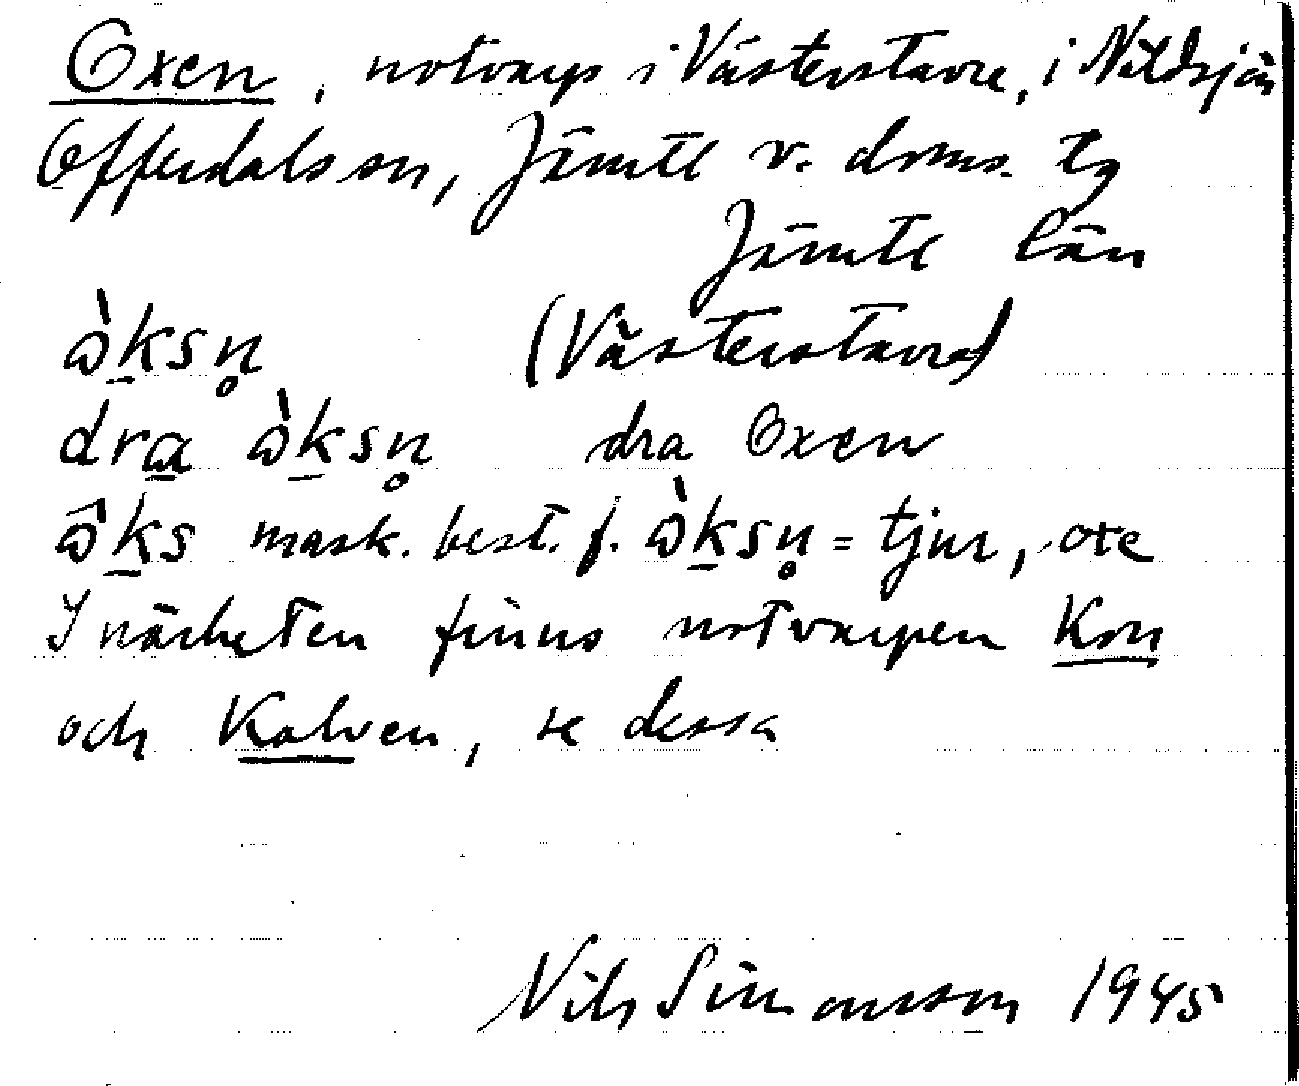 Oxen, notvarp i Västerstavre, i Näldsjön
Offerdals sn, Jämtl v. doms. tg
Jämtl län
ò̱ksn̥ (Västerstavre)
dra òksn̥ dra Oxen
ôks mask. best. f. òksn̥ = tjur, oxe
I närheten finns notvarpen Kon
och Kalven, se dessa
Nils Simonsson 1945